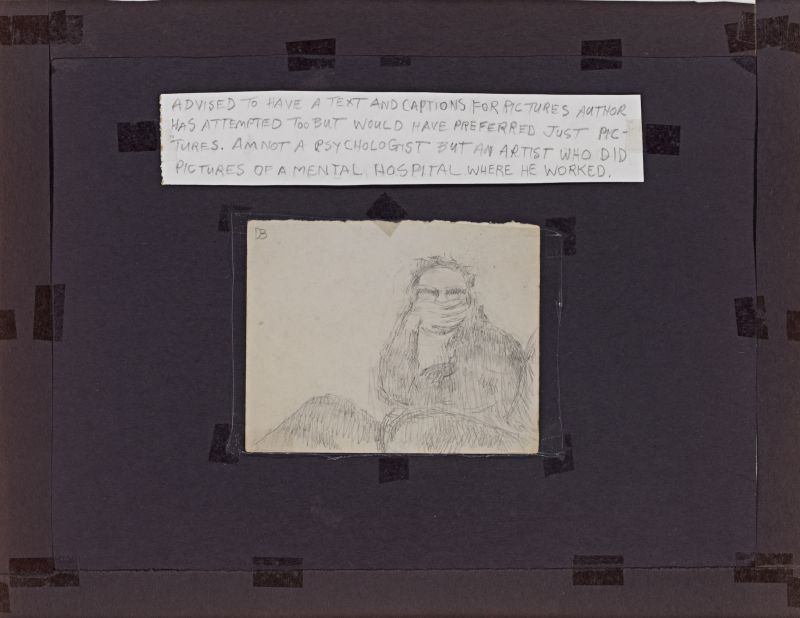 ADVISED TO HAVE A TEXT AND CAPTIONS FOR PICTURES AUTHOR
HAS ATTEMPTED TOO BUT WOULD HAVE PREFERRED JUST PIC-
TURES. AM NOT A PSYCHOLOGIST BUT AN ARTIST WHO DID
PICTURES OF A MENTAL HOSPITAL WHERE HE WORKED.
DB